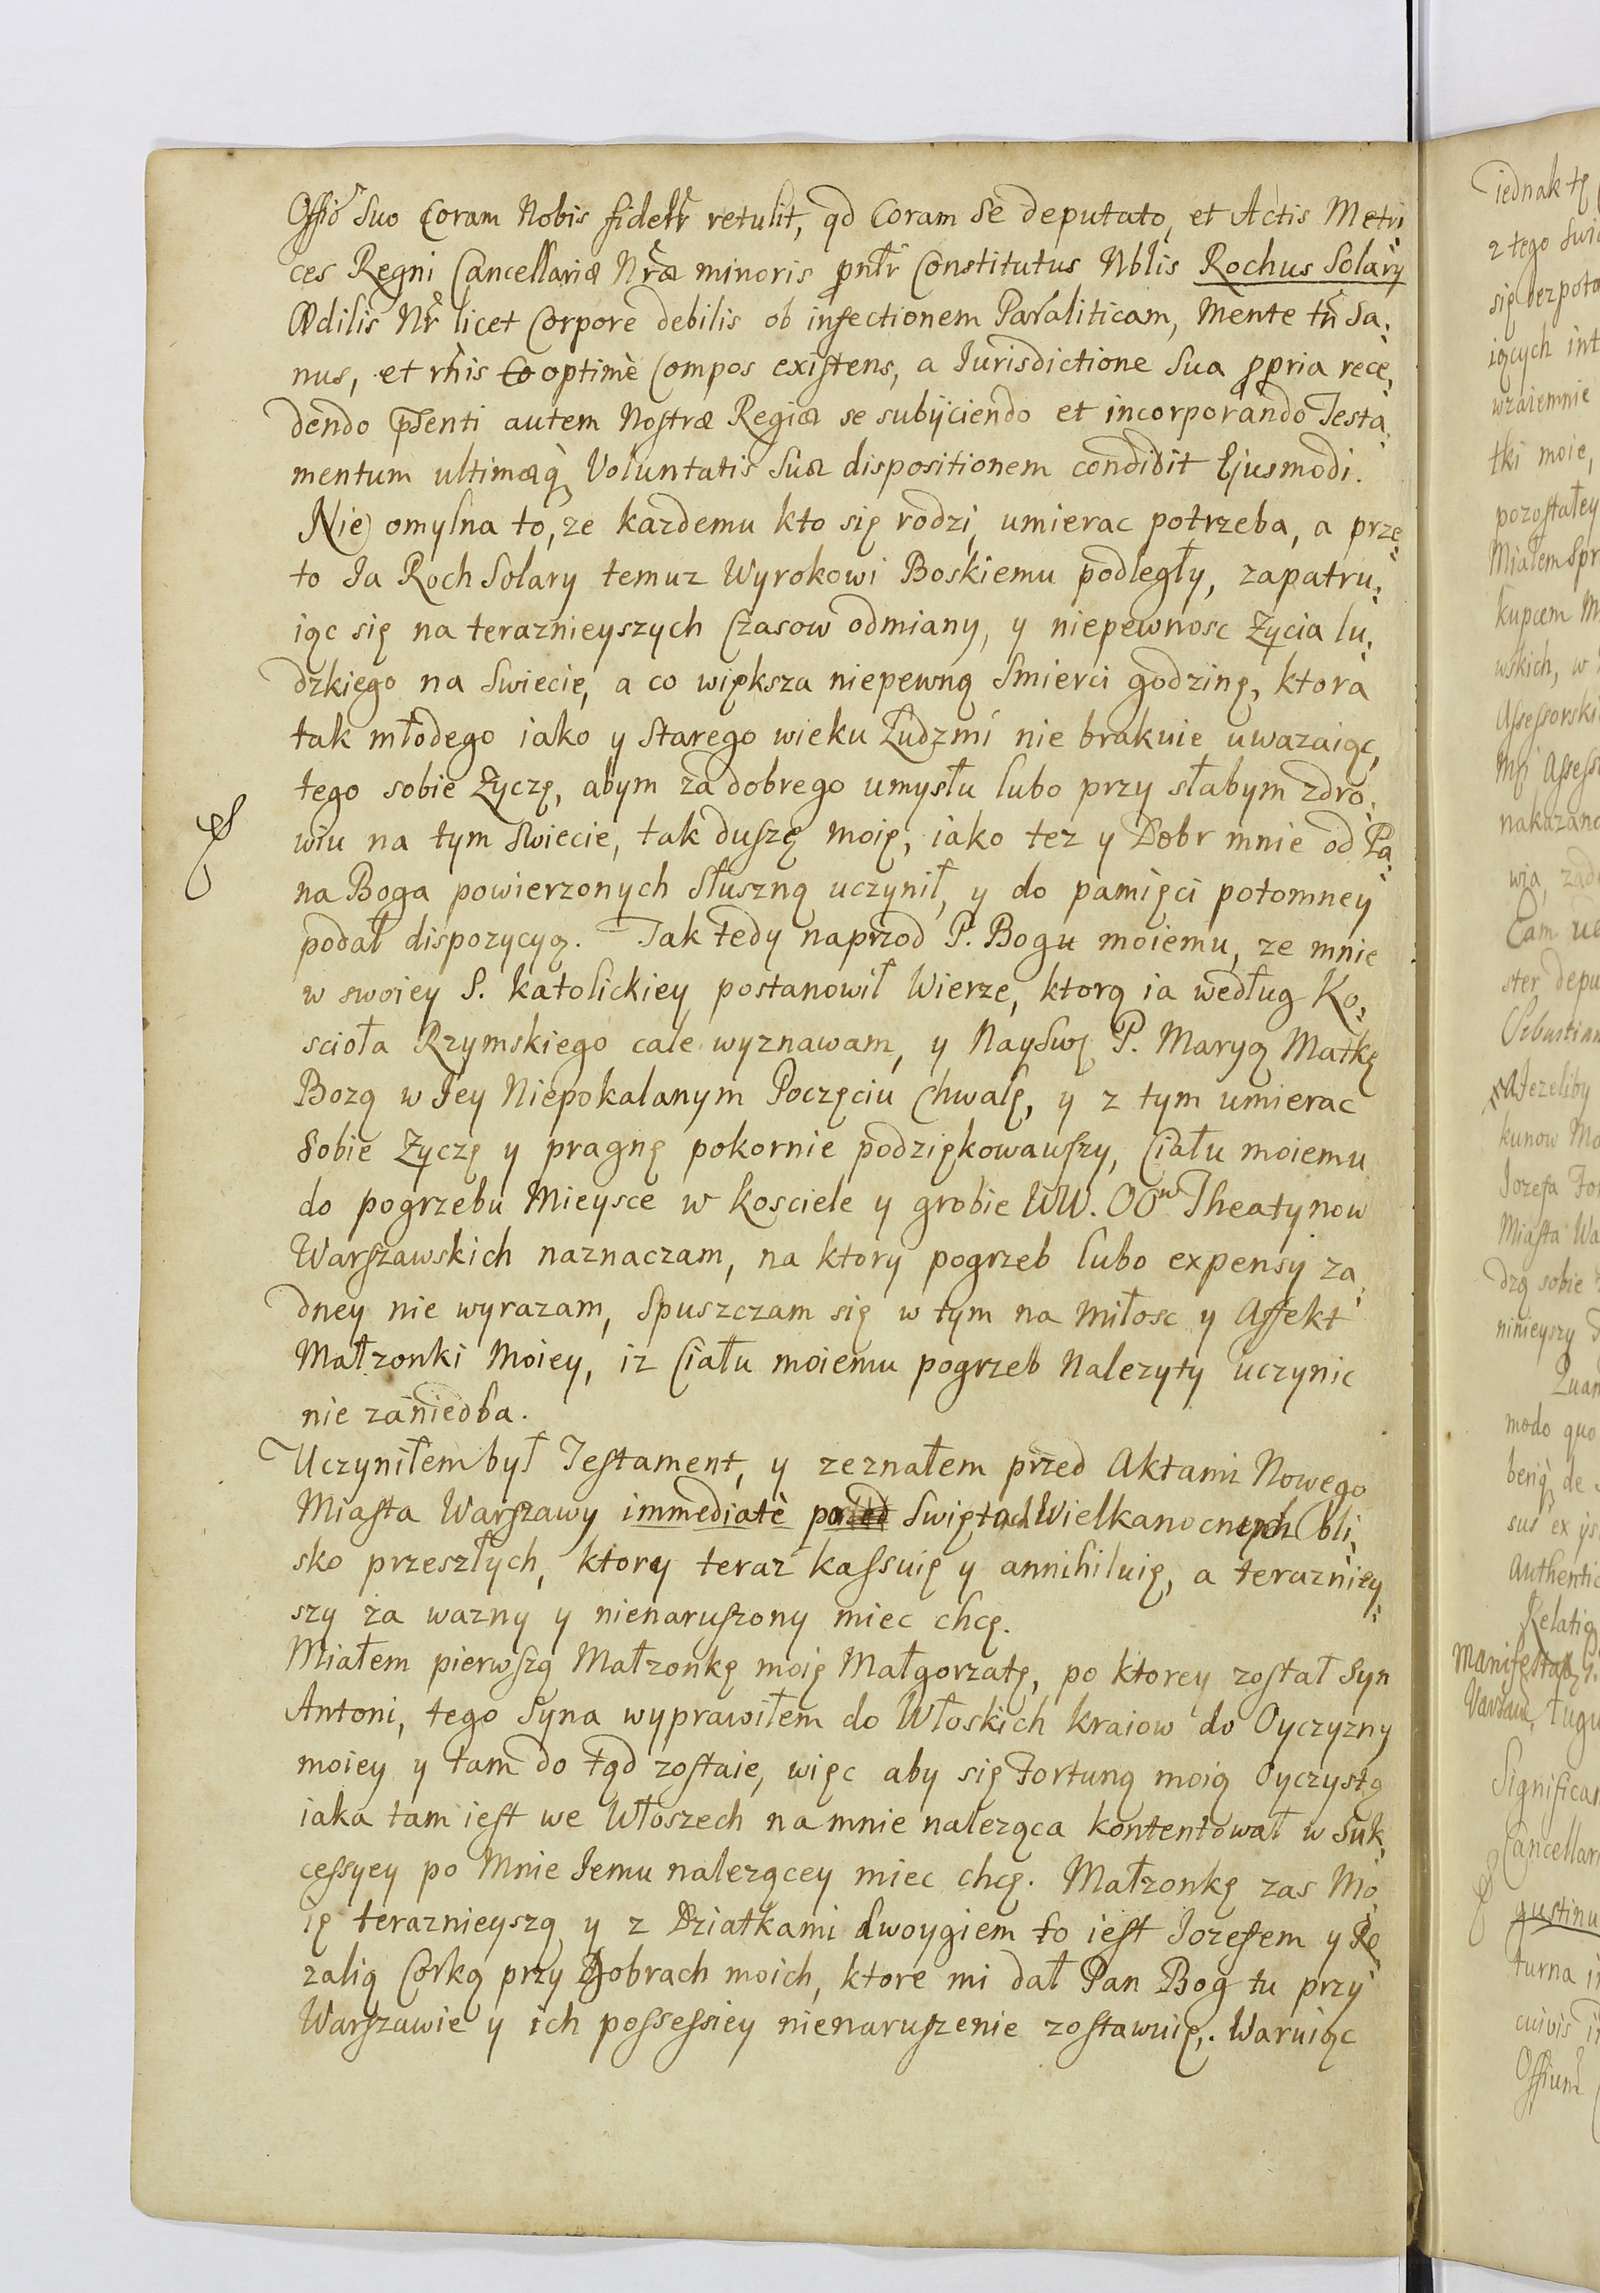 Offio Suo Coram Nobis fidelr retulit, qd Coram Se deputato, et Actis Metri-
ces Regni Cancellariæ Nræ minoris pntr Constitutus Nblis Rochus Solary
Ædilis Nr licet Corpore debilis ob infectionem Paraliticam, Mente tn Sa-
nus, et rnis optimè Compos existens, a Iurisdictione Sua ppria rece-
dendo pdenti autem Nostræ Regiæ se subijciendo et incorporando Testa-
mentum ultimæq Voluntatis Suæ dispositionem condidit Ejusmodi.
Nie omylna to, ze kazdemu kto się rodzi, umierac potrzeba, a prze-
to Ia Roch Solary temuz Wyrokowi Boskiemu podległy, zapatru-
iąc się na teraznieyszych Czasow odmiany, y niepewnosc Zycia lu-
dzkiego na Swiecie, a co większa niepewną Smierci godzinę, ktora
tak młodego iako y Starego wieku Ludzmi nie brakuie uwazaiąc,
tego sobie Zyczę, abym za dobrego umysłu lubo przy słabym zdro-
wiu na tym Swiecie, tak duszę moię, iako tez y Dobr mnie od Pa-
na Boga powierzonych Słuszną uczynił, y do pamięci potomney
podał dispozycyą. Tak tedy naprzod P. Bogu moiemu, ze mnie
w swoiey S. katolickiey postanowił Wierze, ktorą ia według Ko-
scioła Rzymskiego cale wyznawam, y NaySwę P. Maryą Matkę
Bozą w Iey Niepokalanym Poczęciu Chwalę, y z tym umierac
Sobie Zyczę y pragnę pokornie podziękowawszy, Ciału moiemu
do pogrzebu Mieysce w kosciele y grobie WW. OOw Theatynow
Warszawskich naznaczam, na ktory pogrzeb lubo expensy za-
dney nie wyrazam, Spuszczam się w tym na Miłosc y Affekt
Małzonki Moiey, iz Ciału moiemu pogrzeb Nalezyty uczynic
nie zaniedba.
Uczyniłem był Testament, y zeznałem przed Aktami Nowego
Miasta Warszawy immediatè po Swiętach Wielkanocnych bli-
sko przeszłych, ktory teraz kassuię y annihiluię, a terazniey-
szy za wazny y nienaruszony miec chcę.
Miałem pierwszą Małzonkę moię Małgorzatę, po ktorey został Syn
Antoni, tego Syna wyprawiłem do Włoskich kraiow do Oyczyzny
moiey y tam do tąd zostaie, więc aby się Fortuną moią Oyczystą
iaka tam iest we Włoszech na mnie naleząca kontentował w Suk-
cessyey po Mnie Iemu nalezącey miec chcę. Małzonkę zas Mo-
ię teraznieyszą y z Dziatkami dwoygiem to iest Iozefem y Ro-
zalią Corką przy Dobrach moich, ktore mi dał Pan Bog tu przy
Warszawie y ich possessiey nienaruszenie zostawuię. Waruiąc